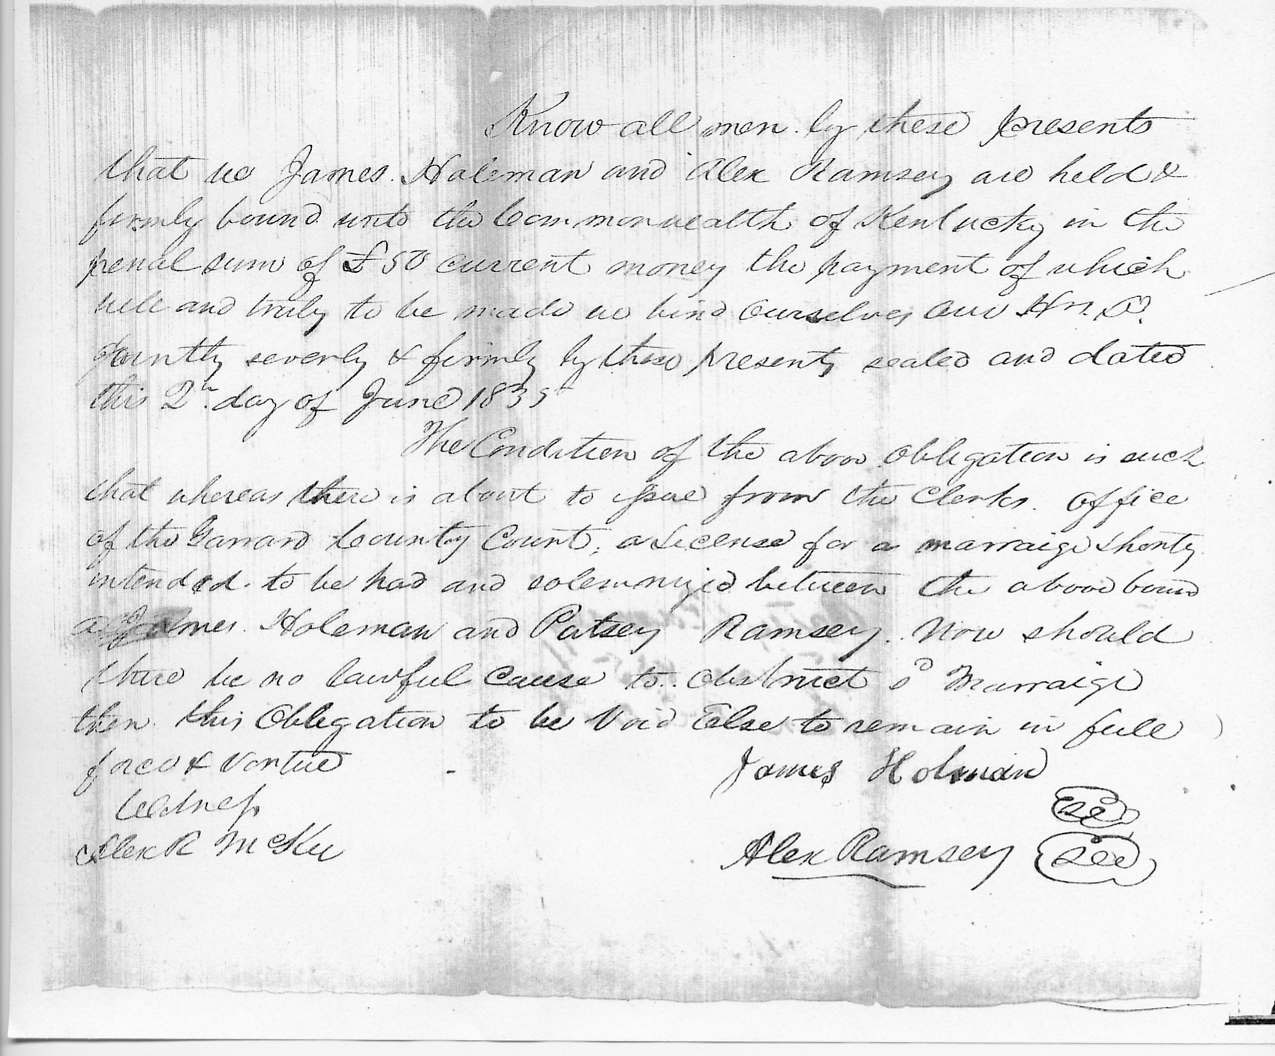 Know all men by these presents
that we James Holeman and Alex Ramsey are held &
firmly bound unto the Commonwealth of Kentucky in the
penal sum of £50 current money the payment of which
well and truly to be made we bind ourselves our Hrs &c.
Jointly severly & firmly by these presents sealed and dated
this 2n day of June 1835
The Condition of the above Obligation is such
that whereas there is about to issue from the Clerks office
of the Garrard County Court, a License for a marraige shortly
intended to be had and solemnized between the above bound
James Holeman and Patsey Ramsey. Now should
there be no lawful cause to obstruct sd Marraige
then this Obligation to be Void Else to remain in full
force & vertue
James Holman
Witness
Alex R McKee
Alex Ramsey